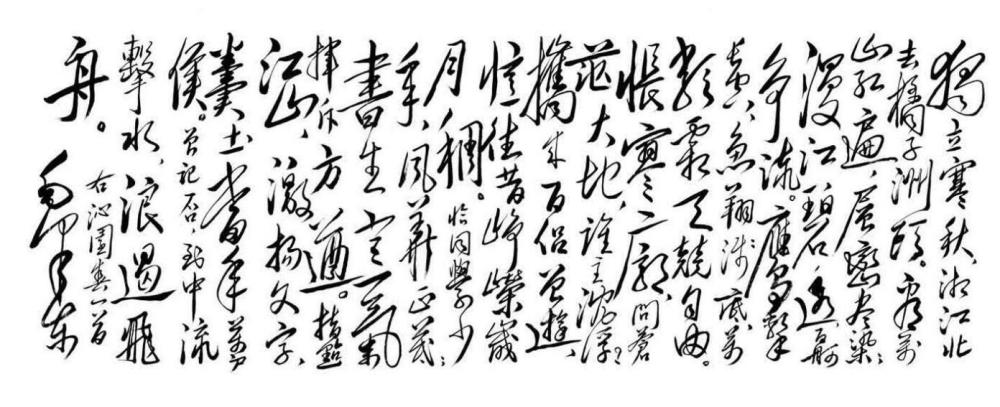 獨立寒秋,湘江北
去,橘子洲頭。看萬
山紅遍,層巒盡染;
漫江碧透,百舸
爭流。鷹擊
長空,魚翔淺底,萬
類霜天競自由。
悵寥廓,問蒼
茫大地,誰主沉浮?
攜來百侶曾遊,
憶往昔崢嶸歲
月稠。恰同學少
年,風華正茂;
書生意氣,
揮斥方遒。指點
江山,激揚文字,
糞土當年萬戶
侯。曾記否,到中流
擊水,浪遏飛
舟。
右沁園春一首
毛澤東